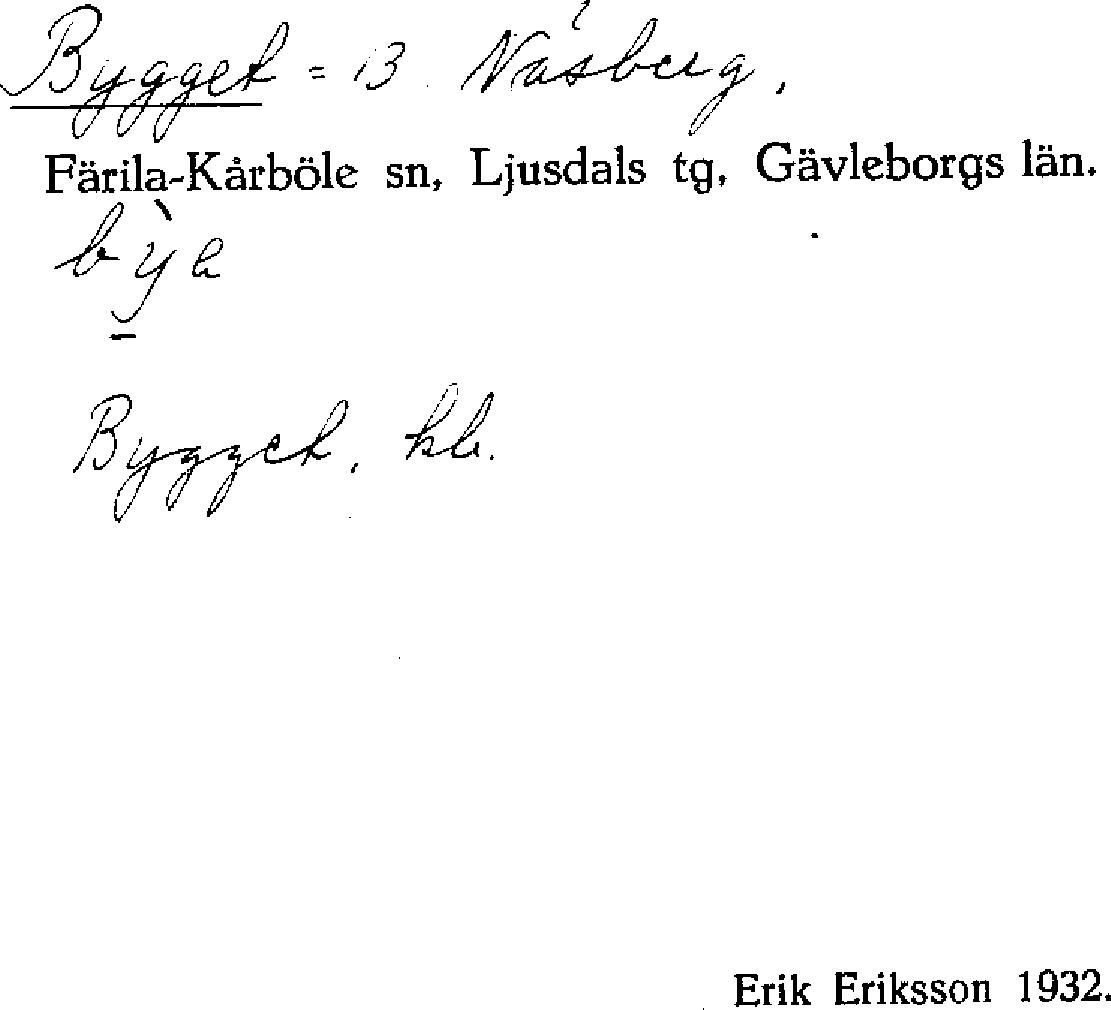 Bygget = B. Näsberg,
Färila-Kårböle sn, Ljusdals tg, Gävleborgs län.
Bygget, kb.
Erik Eriksson 1932.